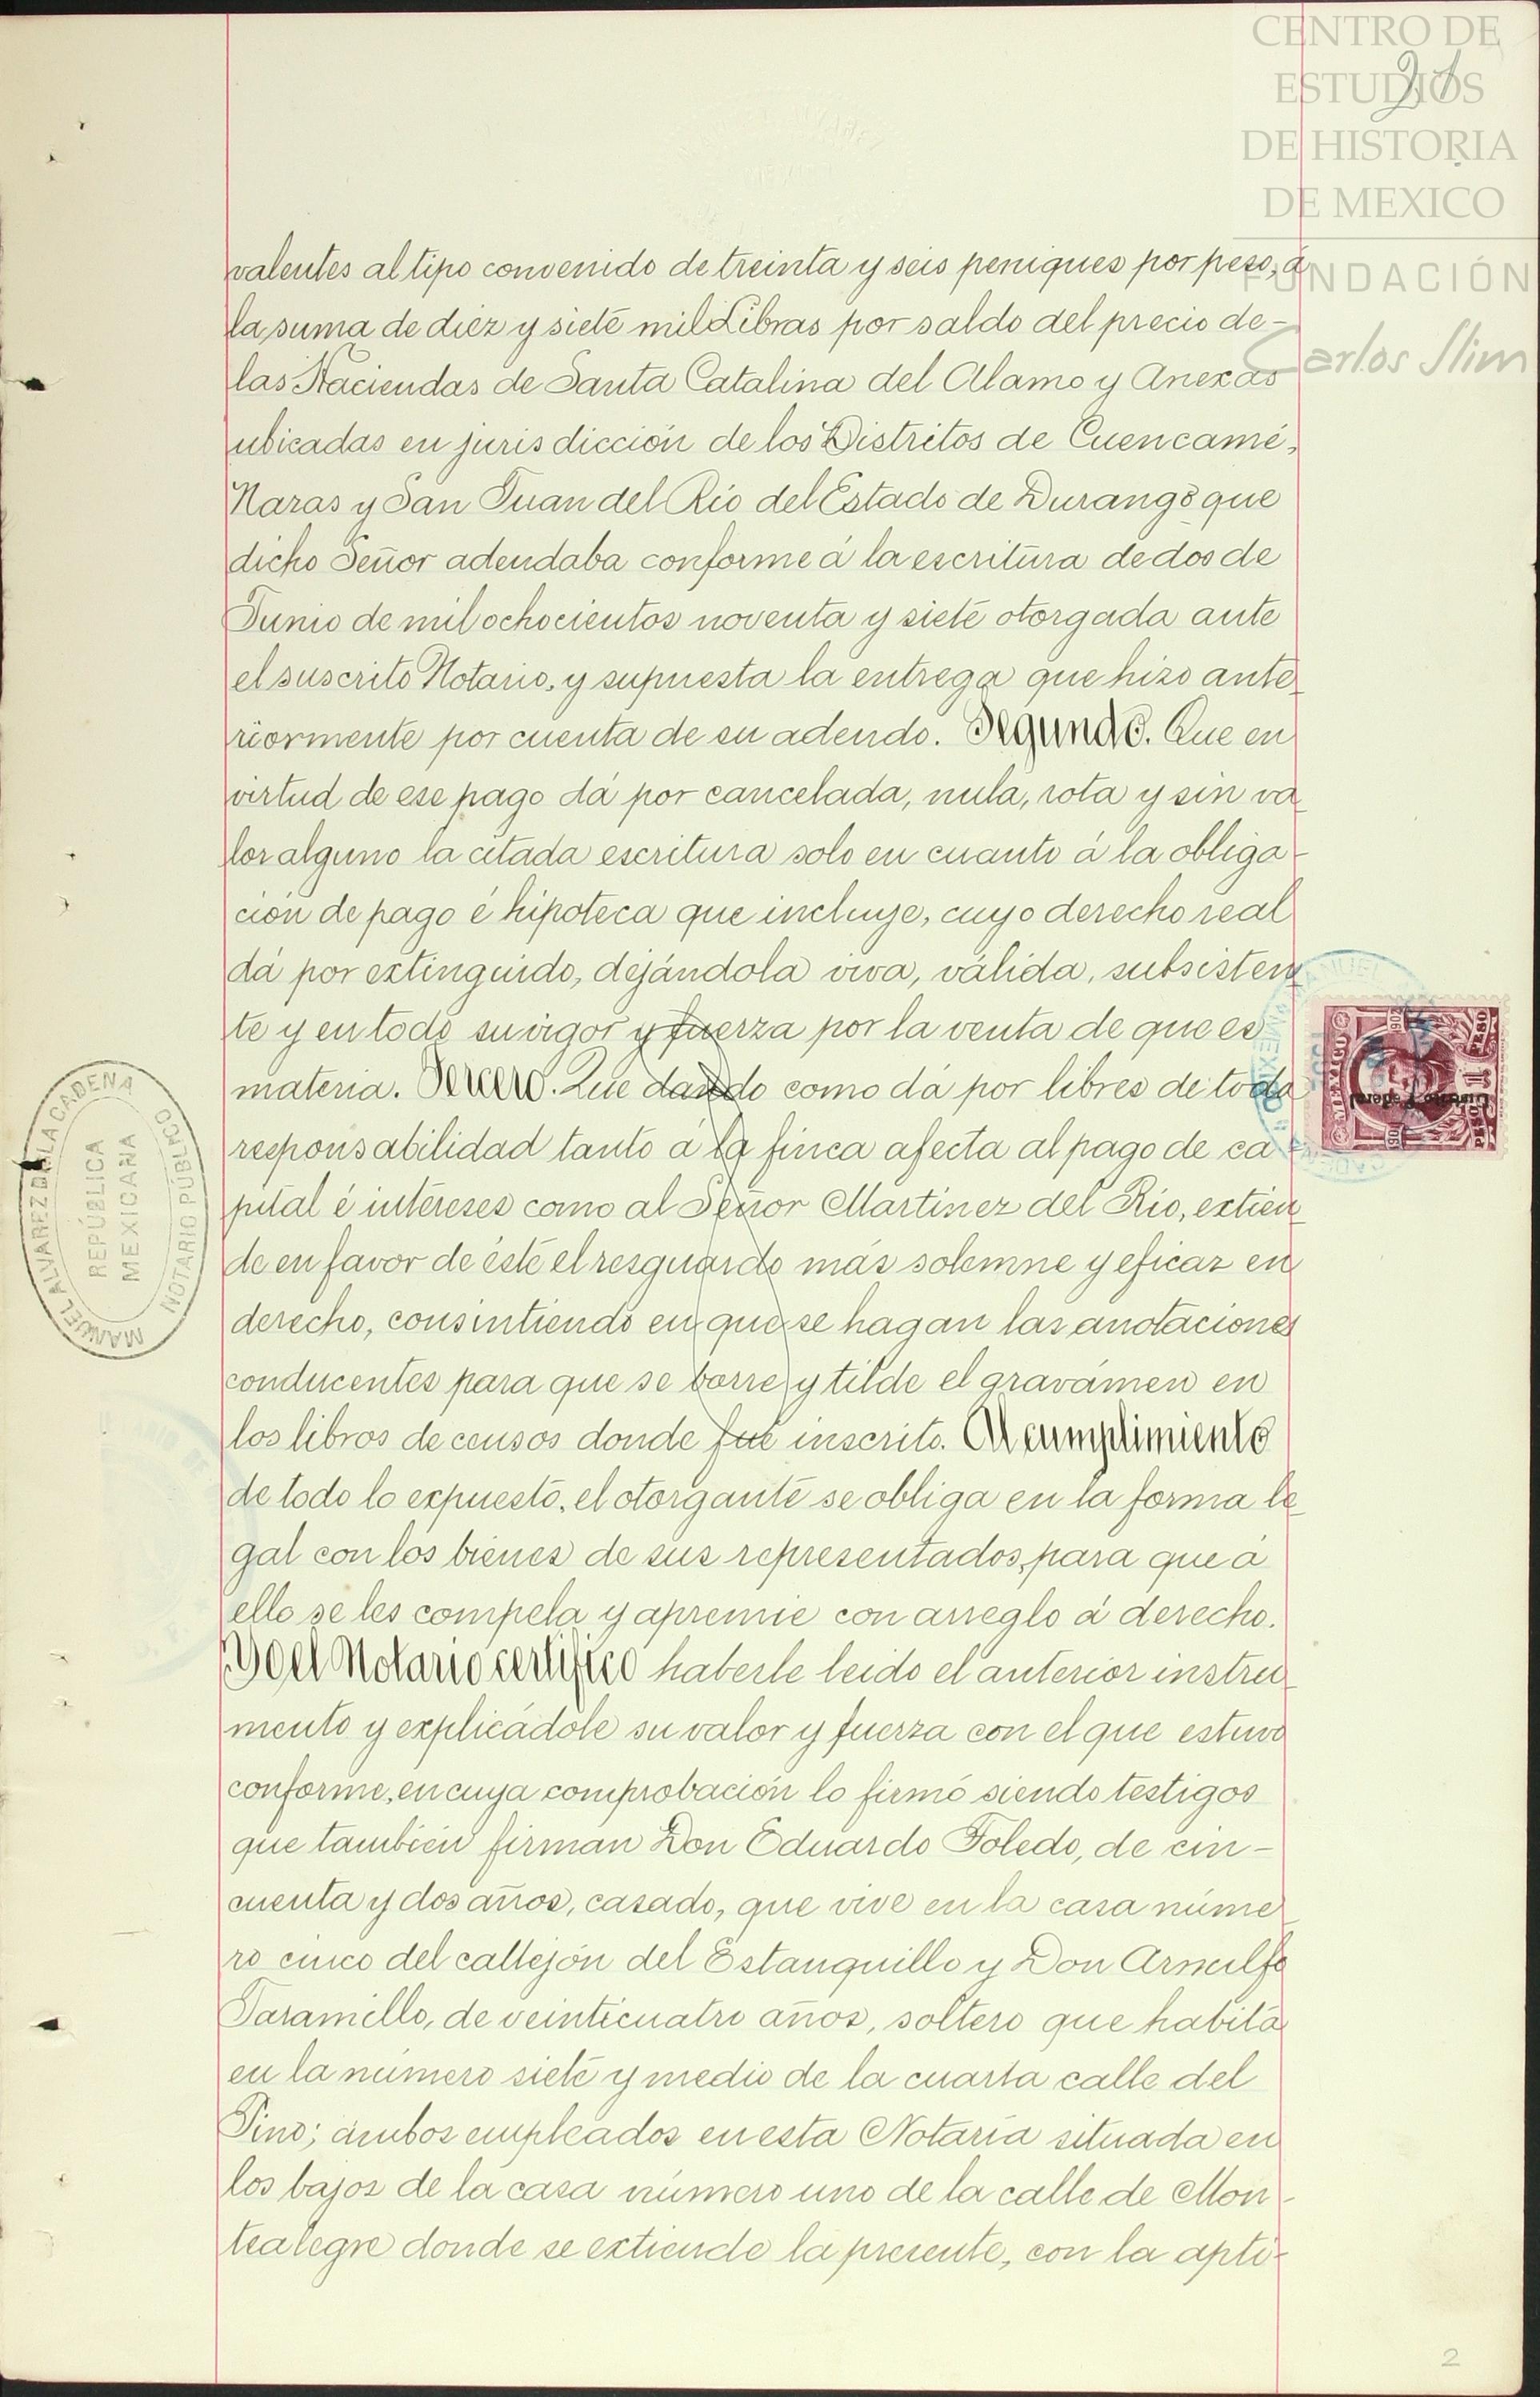 CENTRO DE
ESTUDIOS
DE HISTORIA
DE MEXICO
FUNDACIÓN
Carlos Slim
21
valentes al tipo convenido de treinta y seis peniques por peso, á
la suma de diez y siete mil Libras por saldo del precio de-
las Haciendas de Santa Catalina del Alamo y Anexas
ubicadas en jurisdicción de los Distritos de Cuencamé,
Nazas y San Juan del Río del Estado de Durango que
dicho Señor adeudaba conforme á la escritura de dos de
Junio de mil ochocientos noventa y siete otorgada ante
el suscrito Notario, y supuesta la entrega que hizo ante_
riormente por cuenta de su adeudo. Segundo. Que en
virtud de ese pago dá por cancelada, nula, rota y sin va_
lor alguno la citada escritura solo en cuanto á la obliga-
ción de pago é hipoteca que incluye, cuyo derecho real
dá por extinguido, dejándola viva, válida, subsisten_
te y en todo su vigor y fuerza por la venta de que es
materia. Tercero. Que dando como dá por libres de toda
responsabilidad tanto á la finca afecta al pago de ca-
pital é intereses como al Señor Martinez del Rio, extien_
de en favor de éste el resguardo más solemne y eficaz en
derecho, consintiendo en que se hagan las anotaciones
conducentes para que se borre y tilde el gravámen en
los libros de censos donde fué inscrito. Al cumplimiento
de todo lo expuesto, el otorgante se obliga en la forma le_
gal con los bienes de sus representados, para que á
ello se les compela y apremie con arreglo á derecho.
Yo el Notario certifico haberle leido el anterior instru_
mento y explicádole su valor y fuerza con el que estuvo
conforme, en cuya comprobación lo firmó siendo testigos
que también firman Don Eduardo Toledo, de cin-
cuenta y dos años, casado, que vive en la casa núme_
ro cinco del callejón del Estanquillo y Don Arnulfo
Jaramillo, de veinticuatro años, soltero que habita
en la número siete y medio de la cuarta calle del
Pino; ambos empleados en esta Notaría situada en
los bajos de la casa número uno de la calle de Mon-
tealegre donde se extiende la presente, con la apti-
MANUEL ALVAREZ DE LA CADENA
NOTARIO PÚBLICO
REPÚBLICA
MEXICANA
Distrito Federal
2